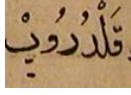 قَلْدُرُوبْ